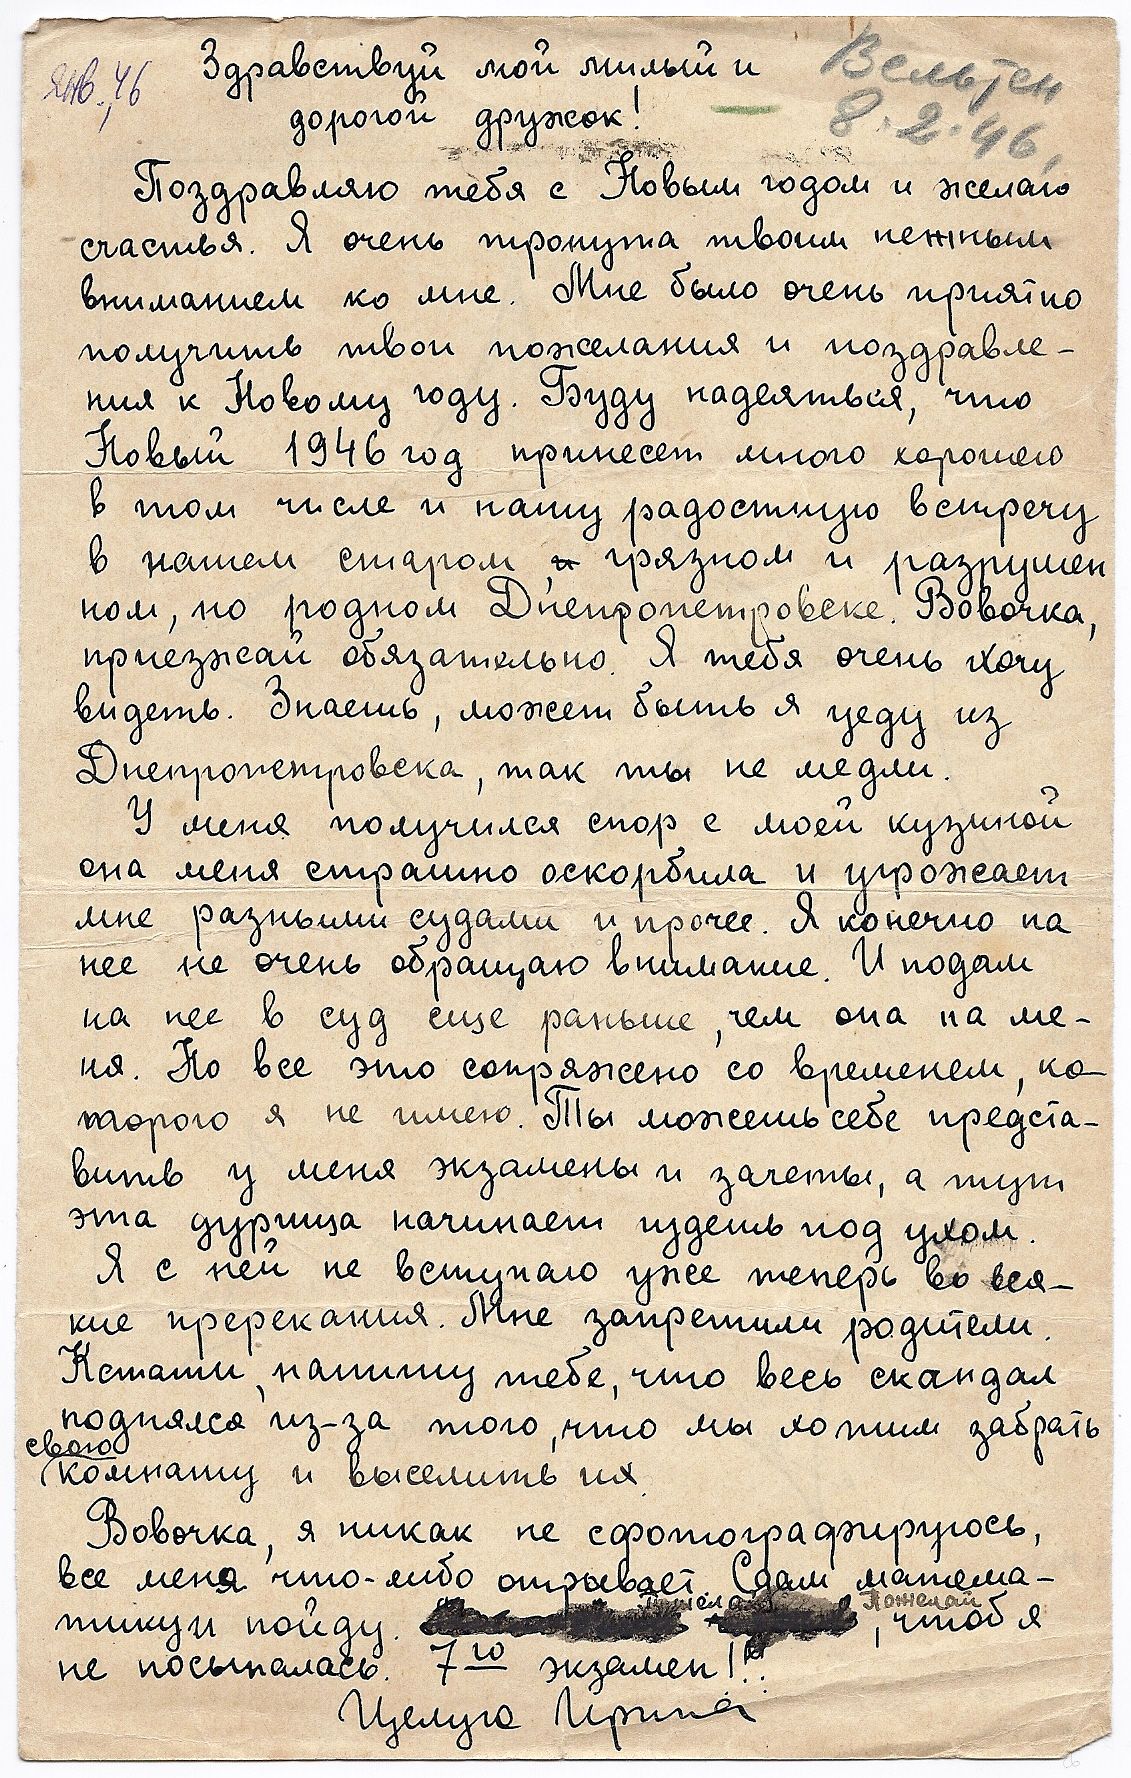 Янв., 46
Вельтен
8.2.46.
Здравствуй мой милый и
дорогой дружок!
Поздравляю тебя с Новым годом и желаю
счастья. Я очень тронута твоим нежным
вниманием ко мне. Мне было очень приятно
получить твои пожелания и поздравле-
ния к Новому году. Буду надеяться, что
Новый 1946 год принесет много хорошего
в том числе и нашу радостную встречу
в нашем старом, и грязном и разрушен
ном, но родном Днепропетровске. Вовочка,
приезжай обязательно. Я тебя очень хочу
видеть. Знаешь, может быть я уеду из
Днепропетровска, так ты не медли.
У меня получился спор с моей кузиной
она меня страшно оскорбила и угрожает
мне разными судами и прочее. Я конечно на
нее не очень обращаю внимание. И подам
на нее в суд еще раньше, чем она на ме-
ня. Но все это сопряжено со временем, ко-
торого я не имею. Ты можешь себе предста-
вить у меня экзамены и зачеты, а тут
эта дурища начинает гудеть под ухом.
Я с ней не вступаю уже теперь во вся-
кие пререкания. Мне запретили родители.
Кстати, напишу тебе, что весь скандал
поднялся из-за того, что мы хотим забрать
свою
комнату и выселить их
Вовочка, я никак не сфотографируюсь,
все меня что-либо отрывает. Сдам матема-
тику и пойду. Пожелай, чтоб я
не посыпалась. 7го экзамен!!!
Целую Ирина